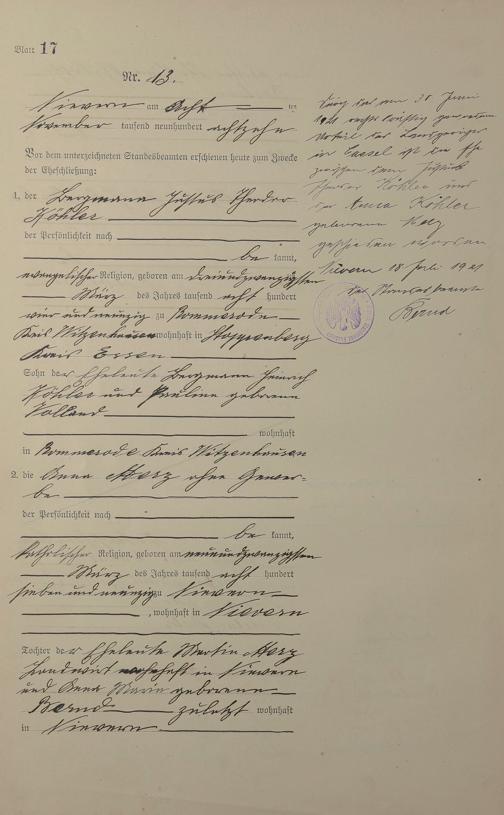 Blatt 17
Nr. 13.
Nievern am acht ten
November tausend neunhundert achtzehn
Vor dem unterzeichneten Standesbeamten erschienen heute zum Zwecke
der Eheschließung:
1. der Bergmann Justus Theodor
Köhler
der Persönlichkeit nach
be kannt,
evangelischer Religion, geboren am dreiundzwanzigsten
März des Jahres tausend acht hundert
vier und neunzig zu Rommerode
Kreis Witzenhausen wohnhaft in Stoppenberg
Kreis Essen
Sohn der Eheleute Bergmann Heinrich
Köhler und Pauline geborene
Volland
wohnhaft
in Rommerode Kreis Witzenhausen
2. die Anna Herz ohne Gewer-
be
der Persönlichkeit nach
be kannt,
katholischer Religion, geboren am neunundzwanzigsten
März des Jahres tausend acht hundert
sieben und neunzig zu Nievern
, wohnhaft in Nievern
Tochter der Eheleute Martin Herz
Landwirt wohnhaft in Nievern
und Anna Maria geborene
Bernd zuletzt wohnhaft
in Nievern
Durch das am Juni
rechtskräftig gewordene
Urteil des Landgerichts
in Cassel ist die Ehe
zwischen dem Justus
Theodor Köhler und
der Anna Köhler
geborene Herz
geschieden worden
Nievern 18 Juli 1921
Der Standesbeamte
Bernd